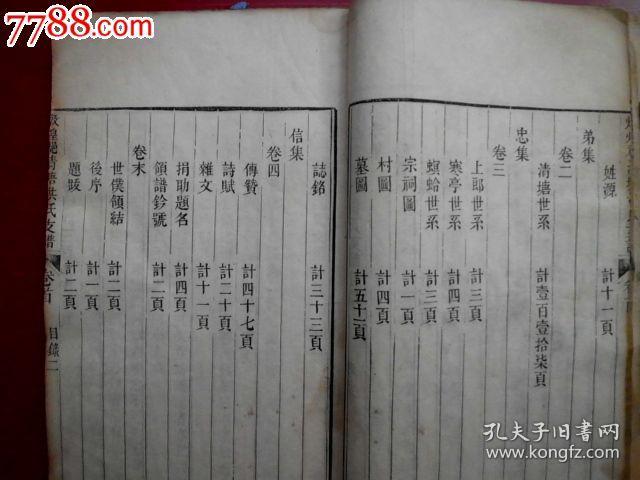 7788.com
姓源 計十一頁
弟集
卷二
清塘世系 計壹百壹拾柒頁
忠集
卷三
上郎世系 計三頁
寒亭世系 計四頁
螟蛤世系 計三頁
宗祠圖 計一頁
村圖 計四頁
墓圖 計五十一頁
誌銘 計三十三頁
信集
卷四
傳贊 計四十七頁
詩賦 計二十頁
雜文 計十一頁
捐助題名 計四頁
領譜鈐號 計二頁
卷末
世僕領結 計二頁
後序 計一頁
題跋 計二頁
洪氏支譜
目錄二
孔夫子旧书网
www.kongfz.com